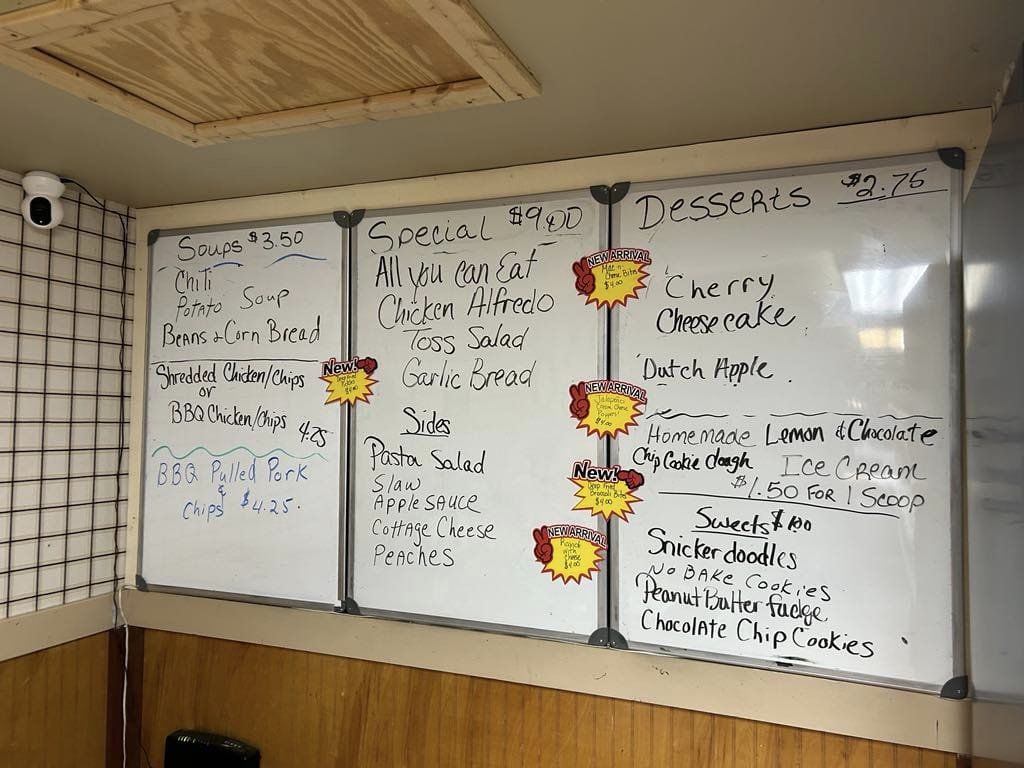 Soups $3.50
Chili
Potato Soup
Beans & Corn Bread
Shredded Chicken/Chips
or
BBQ Chicken/Chips
4.25
BBQ Pulled Pork
&
Chips $4.25.
New!
$4.00
Special $9.00
All you can Eat
Chicken Alfredo
Toss Salad
Garlic Bread
Sides
Pasta Salad
Slaw
Apple sauce
Cottage Cheese
Peaches
NEW ARRIVAL
Mac n
Cheese Bites
$4.00
NEW ARRIVAL
Jalapeño
Cream Cheese
Poppers
$4.00
New!
Deep Fried
Broccoli Bites
$4.00
NEW ARRIVAL
with
Cheese
$4.00
Desserts $2.75
Cherry
Cheesecake
Dutch Apple
Homemade Lemon & Chocolate
Chip Cookie dough Ice Cream
$1.50 For 1 Scoop
Sweets $1.00
Snickerdoodles
No Bake Cookies
Peanut Butter fudge
Chocolate Chip Cookies